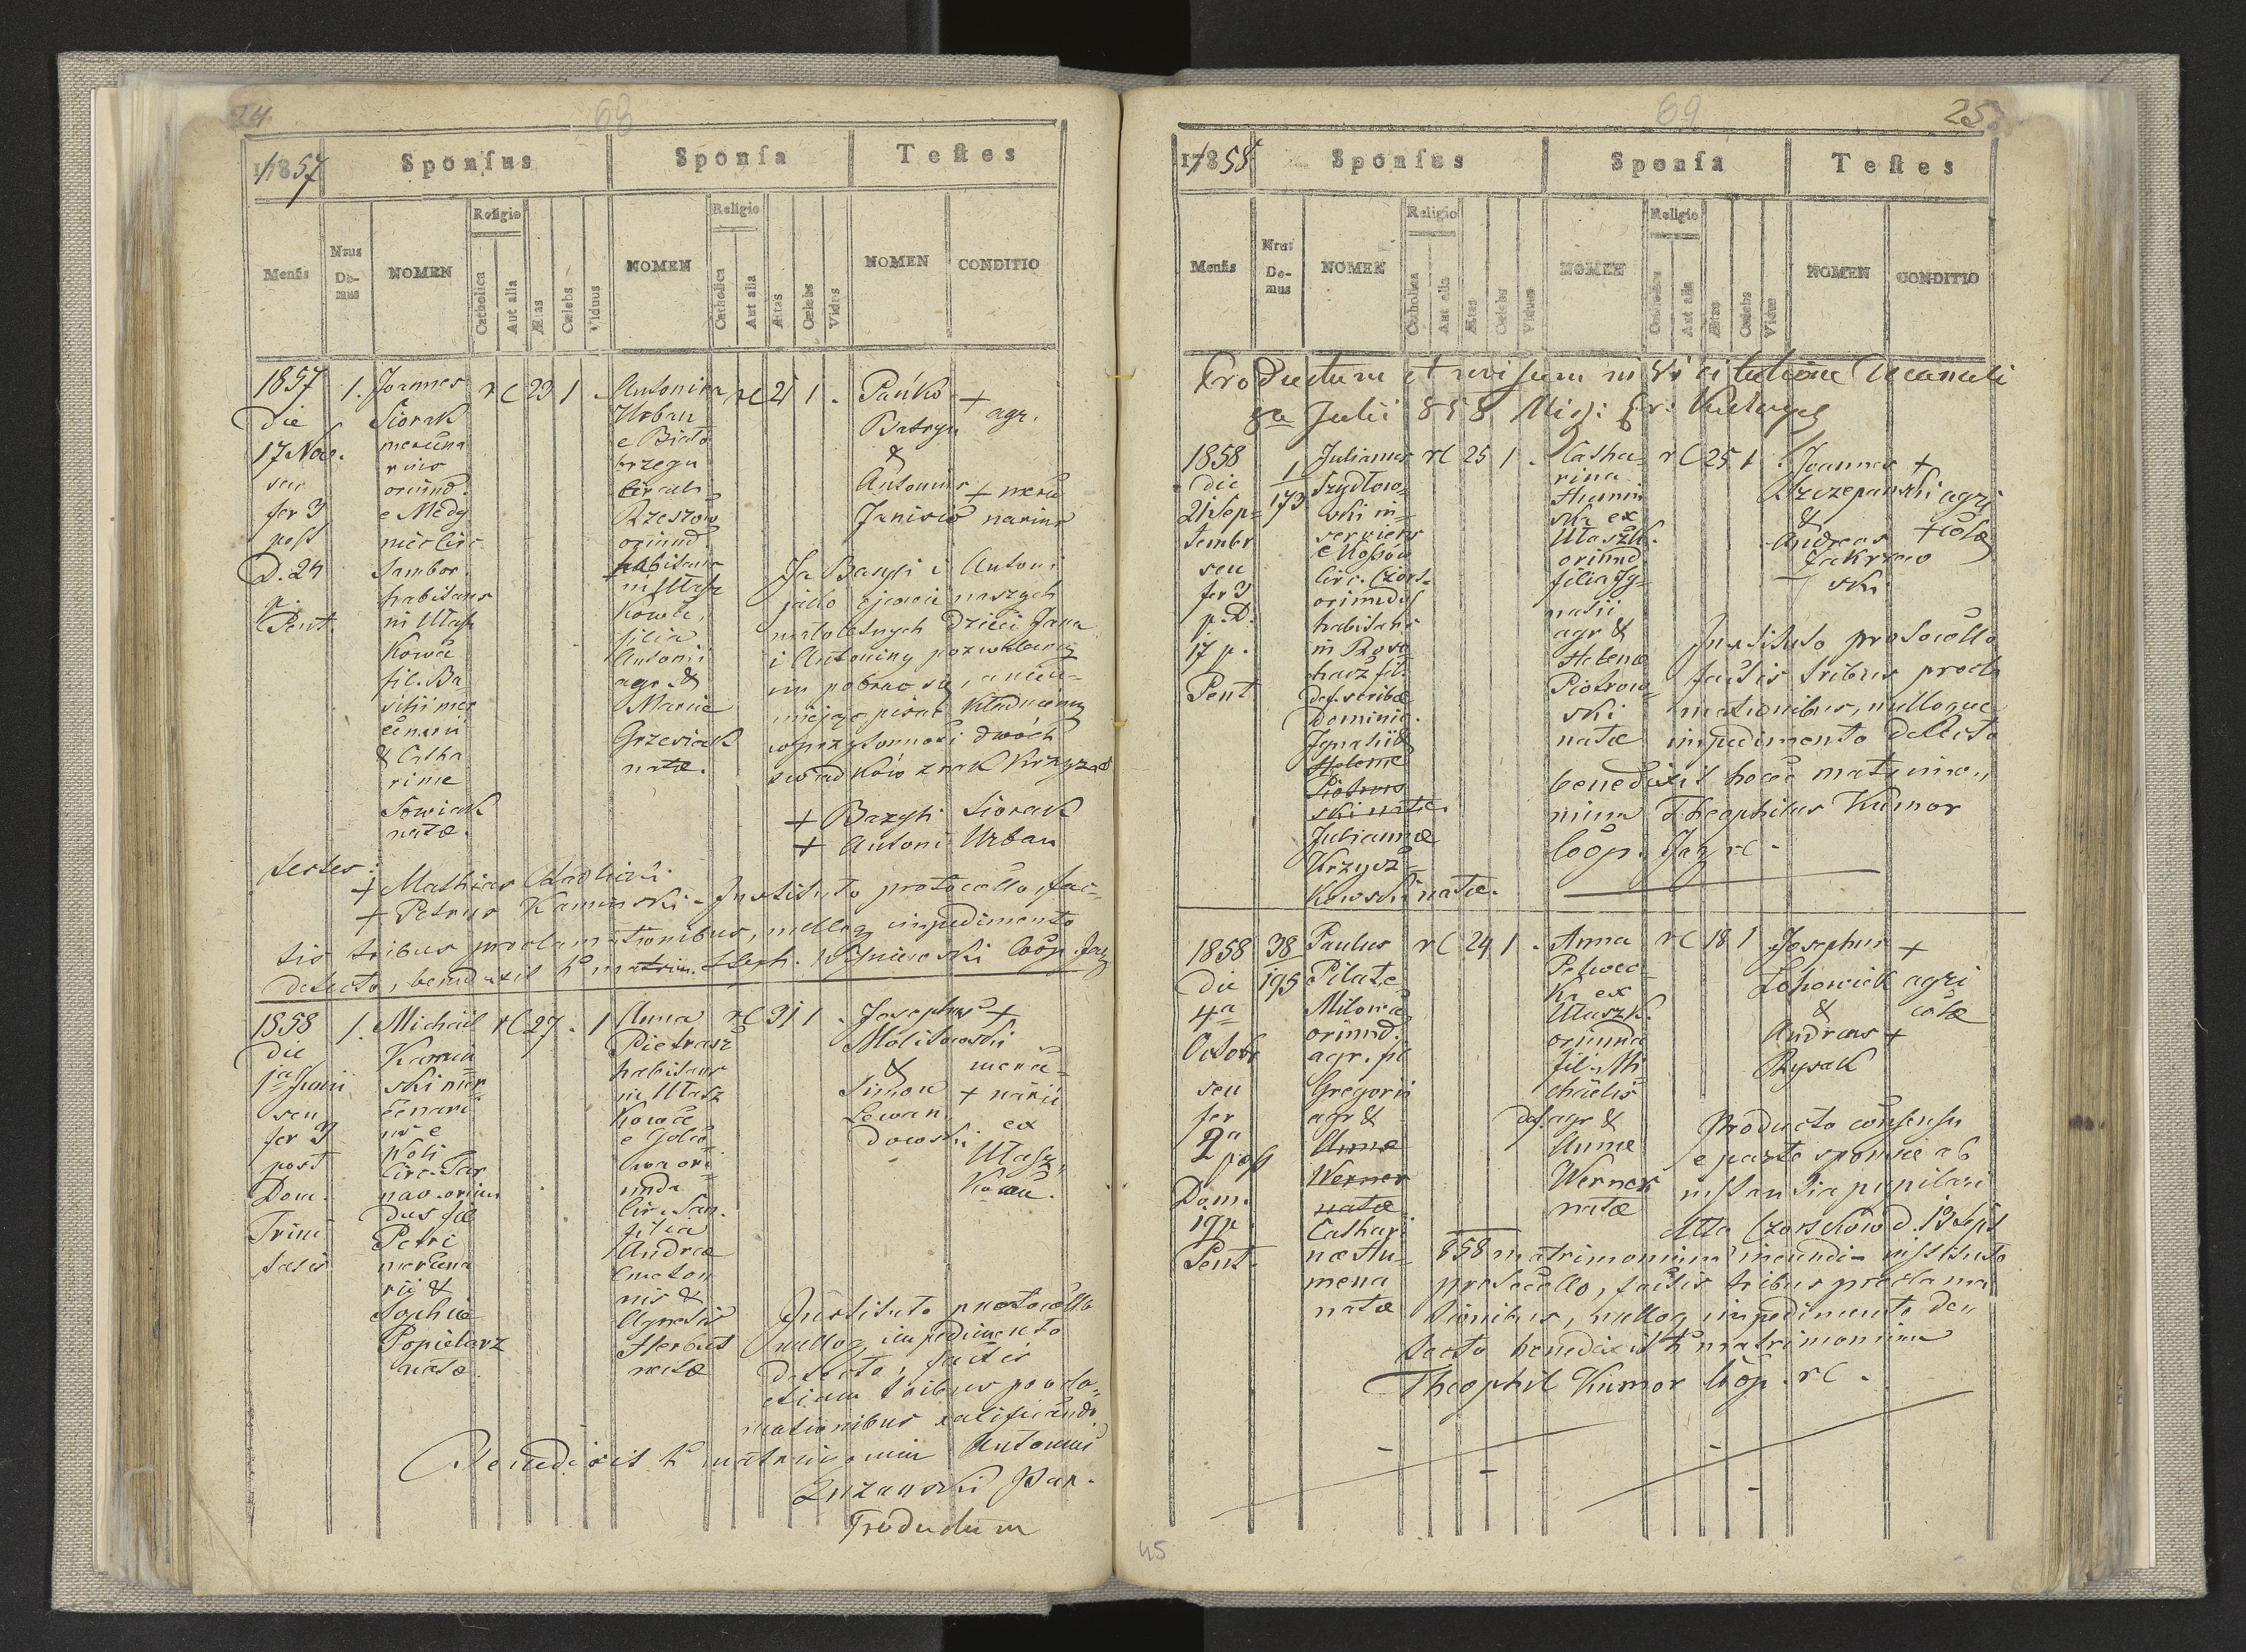 24
68
1857
Sponsus
Sponsa
Testes
Mensis
Nrus Domus
NOMEN
Religio
Catholica
Aut alia
Ætas
Cœlebs
Viduus
NOMEN
Religio
Catholica
Aut alia
Ætas
Cœlebs
Vidus
NOMEN
CONDITIO
1857
Die
17 Nov.
seu
fer 3
post
D. 24
p.
Pent.
1.
Joannes
Siorak
mercena
rius
oriund.
e Medy
nie Circ
Sambor.
habitans
in Ułasz
kowce
fil. Ba
silii mer
cenarii
& Catha
rinae
Sowiak
natæ.
rC 23 1 .
Antonina
Urban
e Biało
brzegu
Circuli
Rzeszow
oriund.
habitans
in Ułasz
kowce,
filia
Antonii
agr. &
Mariæ
Grzesiak
natæ.
rC 21 1 .
Pańko +
Batryn agr.
&
Antonius + merce
Janisiów narius
Ja Bazyli i Antoni
jako ojcowie naszych
małoletnych Dzieci Jana
i Antoniny pozwalamy
im pobrać się, a nieu-
miejąc pisać kładniemy
w przytomności dwóch
swiadków znak krzyża
+ Bazyli Siorak
+ Antoni Urban
testes:
+ Mathias
+ Petrus Kaminski - Instituto protocollo, fac-
tis tribus proclamationibus, nulloq impedimento
detecto, benedixit h matrim. Steph. Wiśniewski Coop. Jag
1858
die
1a Junii
seu
fer 3
post
Dom.
Trini
tatis
1.
Michaël
Kamin
ski mer
cenari
us e
Woli
Circ. Tar
nav. oriun
dus fil
Petri
mercena
rii &
Sophiæ
Popielarz
natæ.
rC 27 . 1
Anna
Pietrasz
habitans
in Ułasz
kowce
e Golco
wa ori
unda
Circ. San.
filia
Andreæ
cmeton
nis &
Agnetis
Herbut
natæ
rC 31 1 .
Josephus +
Molitowski
& merce-
Simon + narii
Lewan ex
dowski Ułasz
kowce.
Instituto protocollo
nulloq impedimento
detecto, factis
etiam tribus procla-
mationibus
Benedixit h matrimonium Antonius
Par.
Productum
69
25
1858
Sponsus
Sponsa
Testes
Mensis
Nrus Domus
NOMEN
Religio
Catholica
Aut alia
Ætas
Cœlebs
Viduus
NOMEN
Religio
Catholica
Aut alia
Ætas
Cœlebs
Vidus
NOMEN
CONDITIO
Productum et revisum in Visitatione Decanali
8a Julii 858
1858
die
21 Sep-
tembr
seu
fer 3
p. D.
17 p.
Pent
1
173
Julianus
Szydłow-
ski in-
serviens
e Kossów
Circ. Czort.
oriundus
habitans
in Roso
hacz fil.
def. scribæ
Dominic.
Ignatii &
Helenæ
Piotrow
ski natæ
Juliannæ
Krzycz-
kowski natæ.
rC 25 1 .
Catha-
rina
Humin
ska ex
Ułaszk.
oriund
filia Ig-
natii
agr &
Helenæ
Piotrow-
ski
natæ
rC 25 1 .
Joannes +
Szczepanski agri
&
Andreas + colæ
Zakrzew
ski
Instituto protocollo
factis tribus procla
mationibus, nulloque
impedimento detecto
benedixit hocce matrimo-
nium Theophilus Kumor
Coop. Jag rC -
1858
die
4a
Octobr
seu
fer
2a
post
Dom.
19 p.
Pent.
38
195
Paulus
Pilate
Milowce
oriund.
agr. fil
Gregorii
agr &
Annæ
Werner
natæ
Cathari
næ Hu-
mena
natæ
rC 24 1 .
Anna
Pełwec
ka ex
Ułaszk.
oriunda
fil. Mi
chaëlis
def. agr &
Annæ
Werner
natæ
rC 18 1
Josephus +
Lohowick agri
& colæ
Andreas +
Rysak
Producto consensu
e parte sponsæ ab
instantia pupilari
dtto Czortków d. 13 Sept
858 matrimonium ineundi - instituto
protocollo, factis tribus proclama
tionibus, nulloq impedimento de-
tecto benedixit h matrimonium
Theophil Kumor Coop. rC -
45